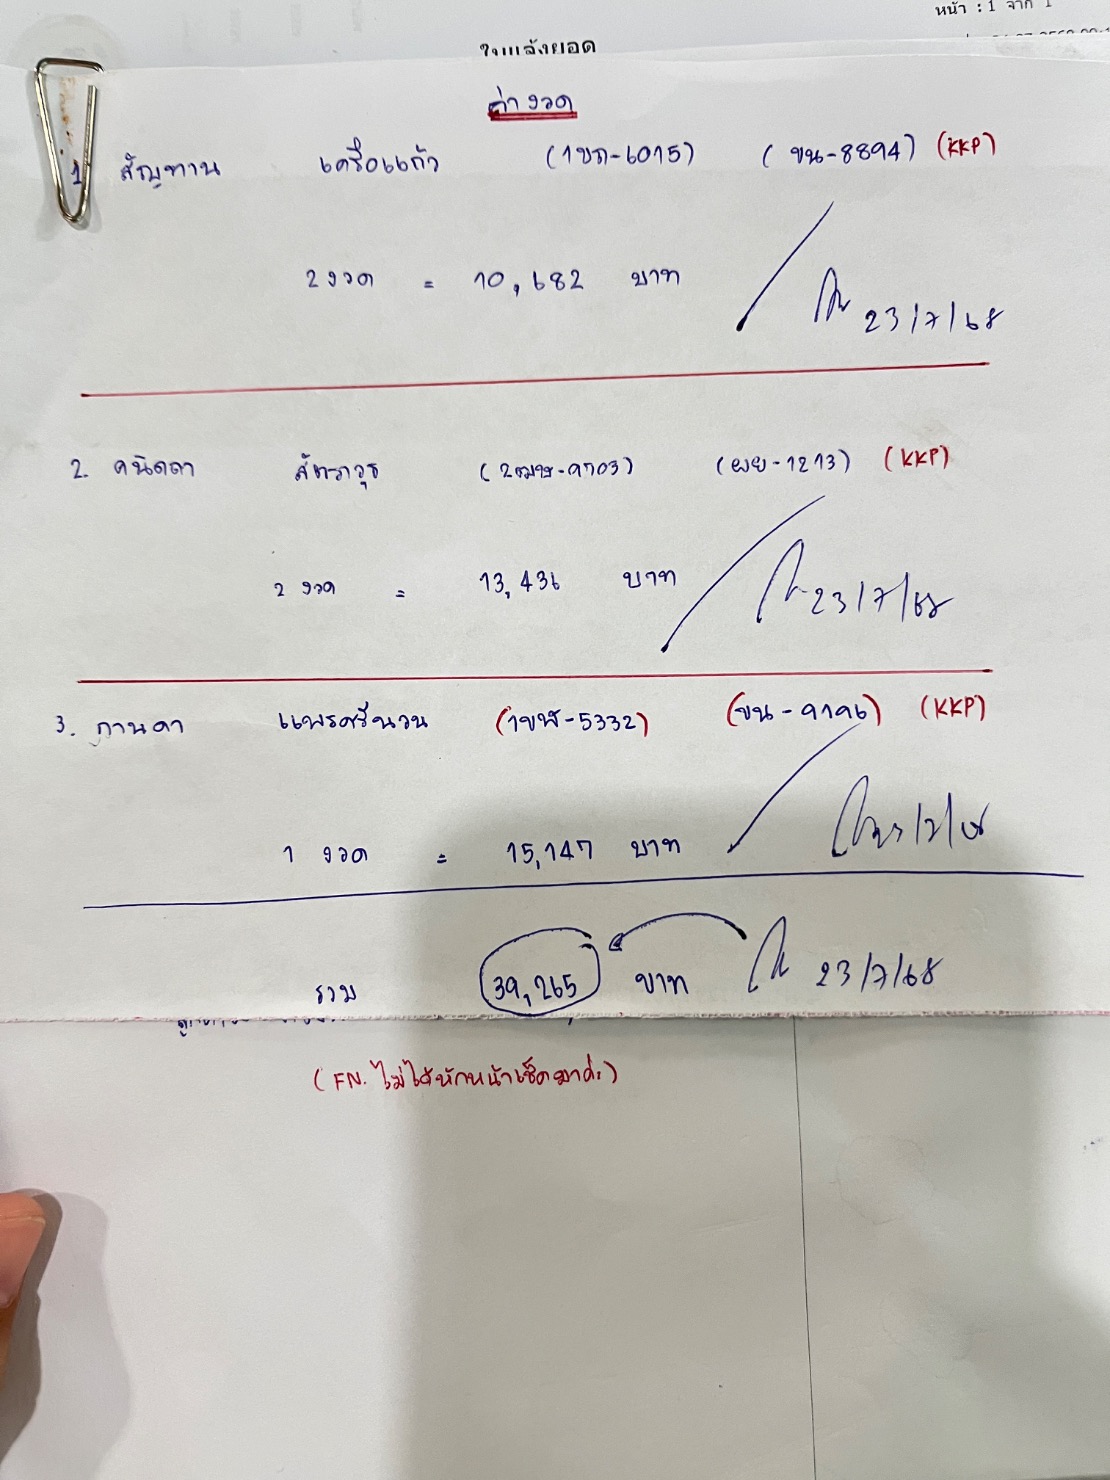 หน้า : 1 จาก 1
ใบแจ้งยอด
ค่างวด
1. สัญทาน เครือแก้ว (1ขถ-6015) (ขน-8894) (KKP)
2 งวด = 10,682 บาท
23/7/68
2. คนิดถา (2ฒษ-9703) (ผย-1213) (KKP)
2 งวด = 13,436 บาท
23/7/68
3. กานดา แพรศรีนวน (1ขฬ-5332) (ขน-9196) (KKP)
1 งวด = 15,147 บาท
23/7/68
รวม 39,265 บาท 23/7/68
(FN. ไม่ได้หักหน้าเช็คมาค่ะ)